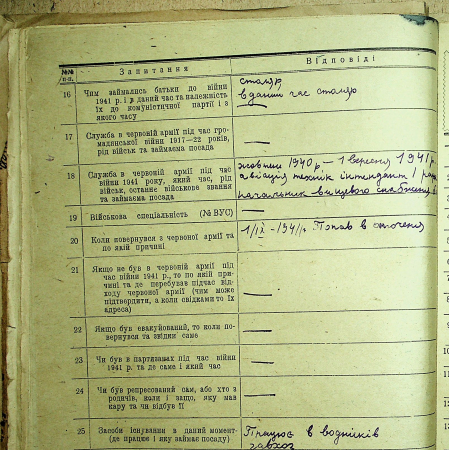 №№
п-п.
Запитання
Відповіді
16
Чим займались батьки до війни
1941 р. і в даний час та належність
їх до комуністичної партії і з
якого часу
столяр
в даний час столяр
17
Служба в червоній армії під час гро-
малянської війни 1917—22 років,
рід військ та займаєма посада
—
18
Служба в червоній армії під час
війни 1941 року, який час, рід
військ, останнє військове звання
та займаєма посада
жовтень 1940 р — 1 вересня 1941 р.
авіація технік інтендант І ранг
начальник вищевого снабження
19
Військова спеціяльність (№ ВУС)
—
20
Коли повернувся з червоної армії та
по якій причині
1/ІХ -1941 р. Попав в оточення
21
Якщо не був в червоній армії під
час війни 1941 р., то по якій при-
чині та де перебував підчас від-
ходу червоної армії (чим може
підтвердити, а коли свідками то їх
адреса)
—
22
Якщо був евакуйований, то коли по-
вернувся та звідки саме
—
23
Чи був в партизанах під час війни
1941 р. та де саме і який час
—
24
Чи був репресований сам, або хто з
родичів, коли і защо, яку мав
кару та чи відбув її
—
25
Засоби існування в даний момент-
(де працює і яку займає посаду)
Працює в водників
завхоз